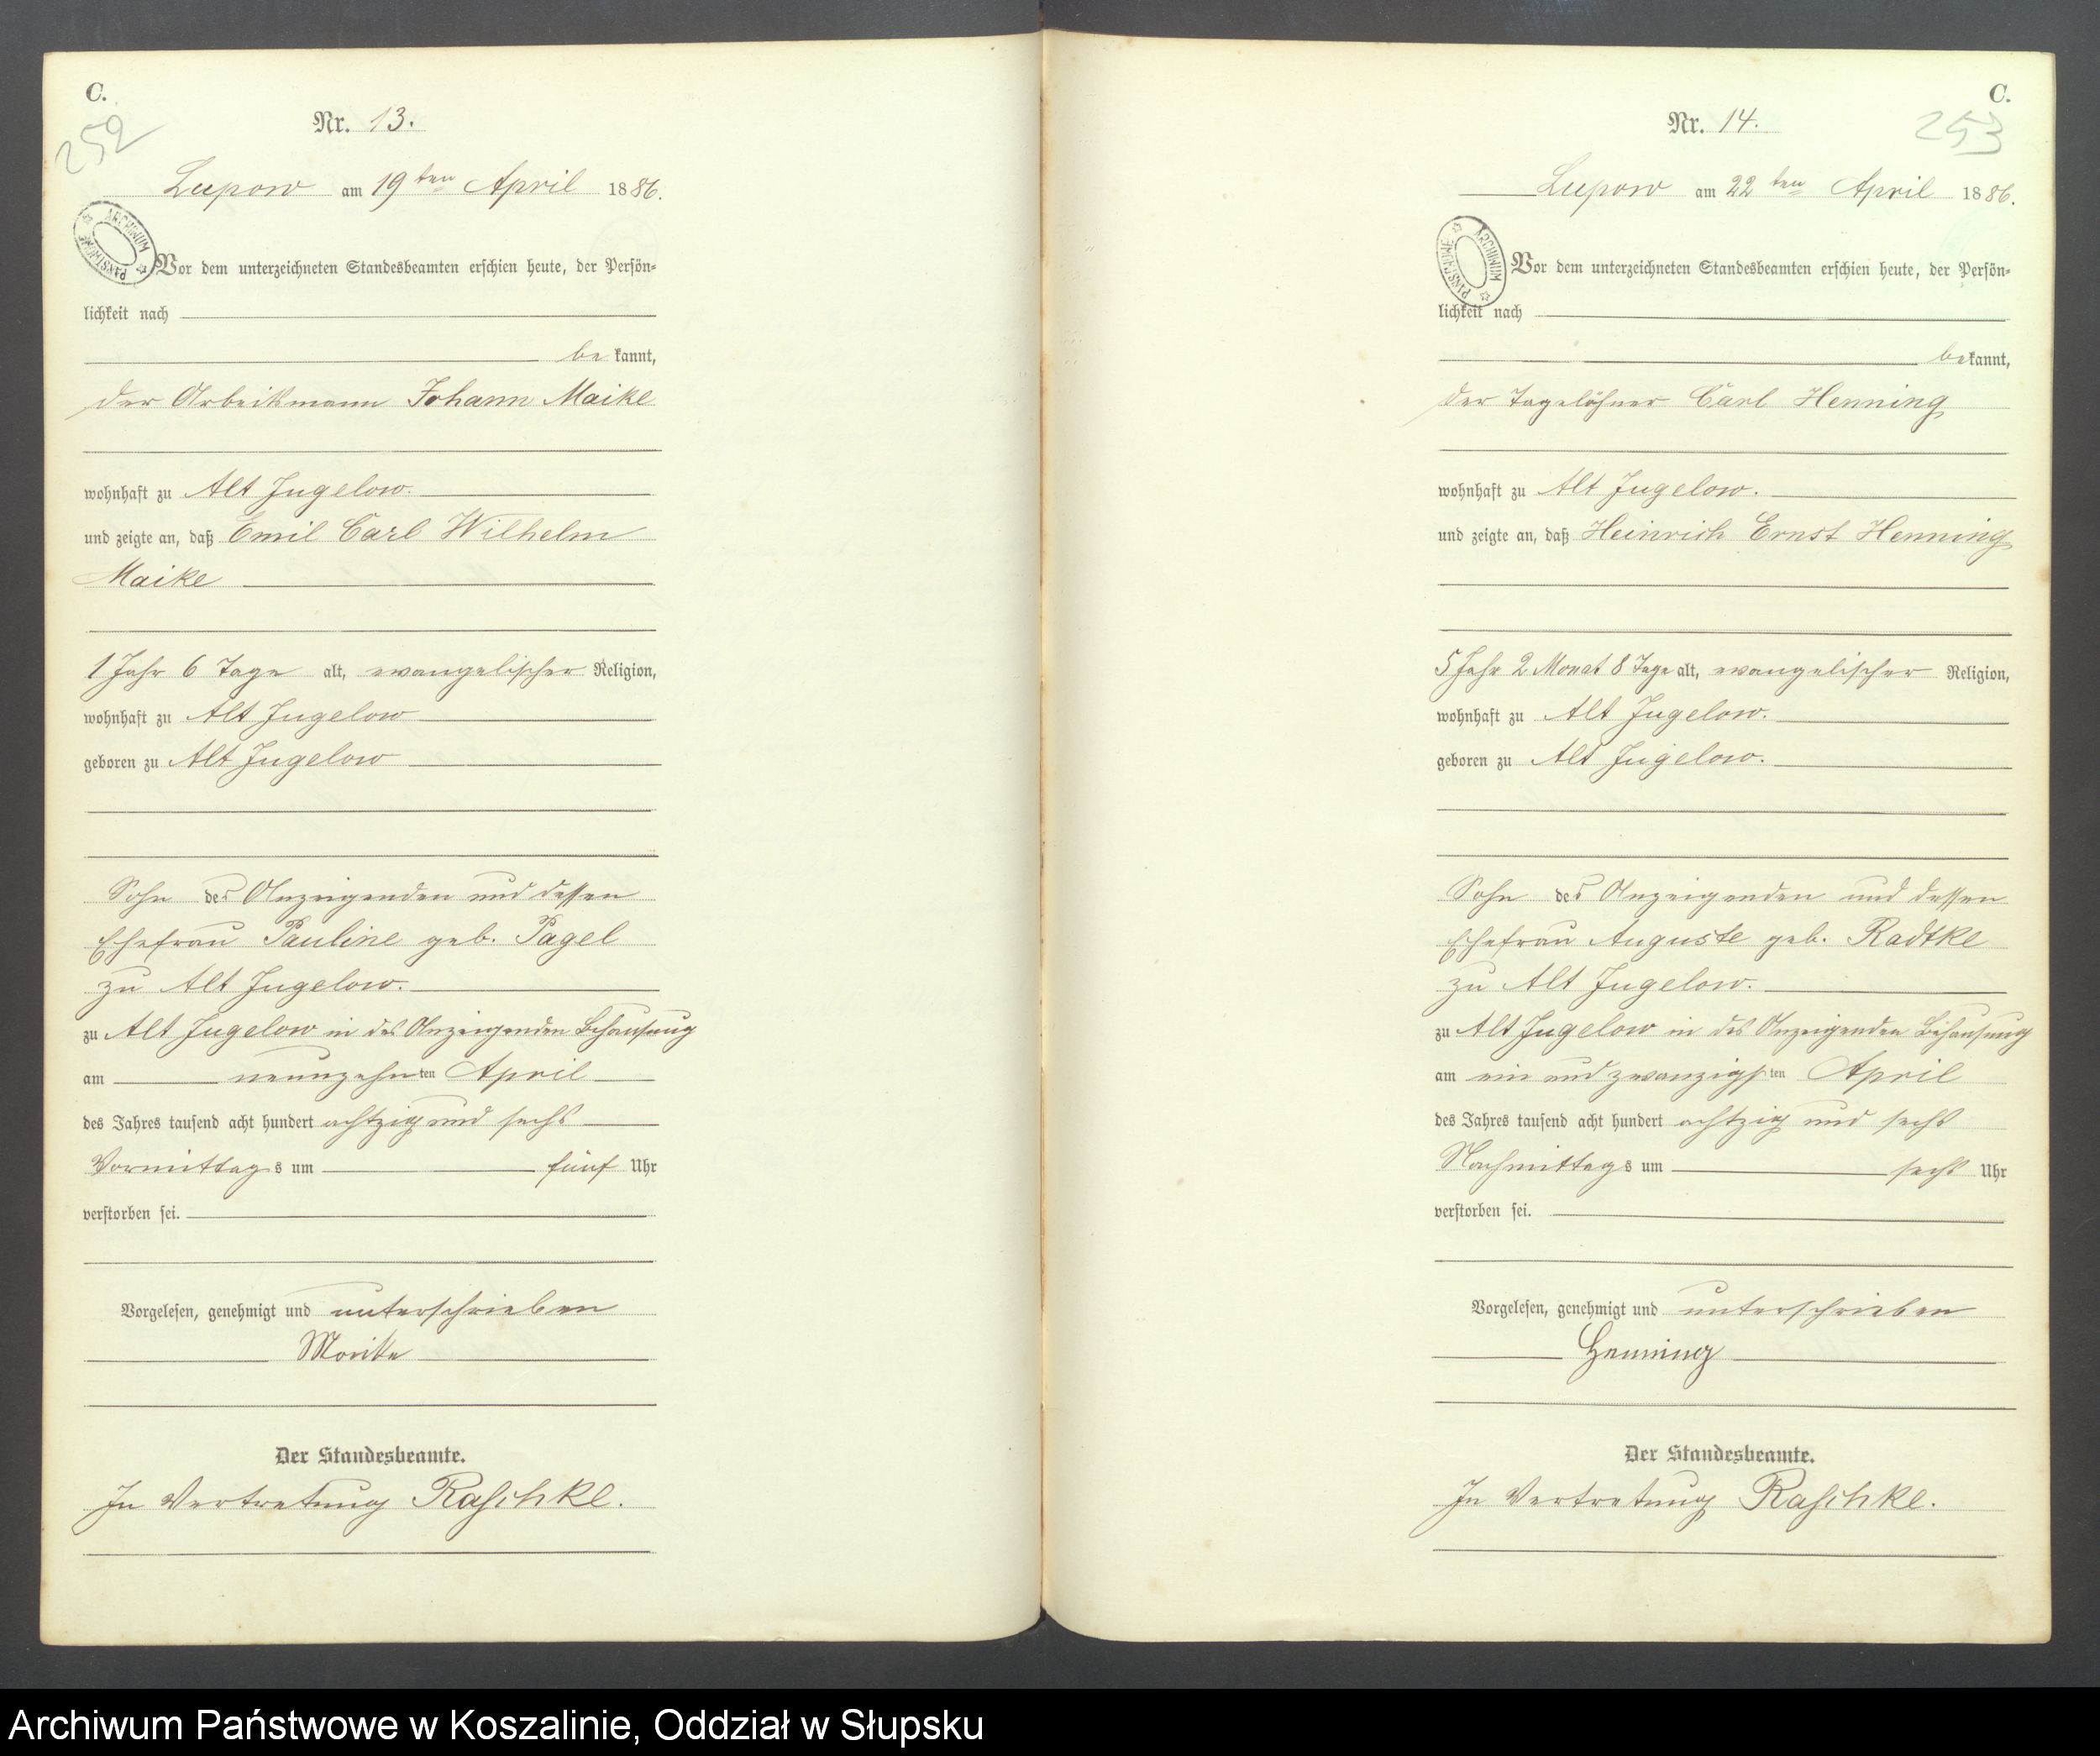 C.
252
Nr. 13.
Lupow am 19ten April 1886.
ARCHIWUM PAŃSTWOWE
Vor dem unterzeichneten Standesbeamten erschien heute, der Persön-
lichkeit nach
bekannt,
der Arbeitsmann Johann Maike
wohnhaft zu Alt Jugelow.
und zeigte an, daß Emil Carl Wilhelm
Maike
1 Jahr 6 Tage alt, evangelischer Religion,
wohnhaft zu Alt Jugelow
geboren zu Alt Jugelow
Sohn des Anzeigenden und dessen
Ehefrau Pauline geb. Pagel
zu Alt Jugelow.
zu Alt Jugelow in des Anzeigenden Behausung
am neunzehnten April
des Jahres tausend acht hundert achtzig und sechs
Vormittags um fünf Uhr
verstorben sei.
Vorgelesen, genehmigt und unterschrieben
Der Standesbeamte.
In Vertretung Raschke.
C.
253
Nr. 14.
Lupow am 22ten April 1886.
ARCHIWUM PAŃSTWOWE
Vor dem unterzeichneten Standesbeamten erschien heute, der Persön-
lichkeit nach
bekannt,
der Tagelöhner Carl Henning
wohnhaft zu Alt Jugelow.
und zeigte an, daß Heinrich Ernst Henning
5 Jahr 2 Monat 8 Tage alt, evangelischer Religion,
wohnhaft zu Alt Jugelow.
geboren zu Alt Jugelow.
Sohn des Anzeigenden und dessen
Ehefrau Auguste geb. Radtke
zu Alt Jugelow.
zu Alt Jugelow in des Anzeigenden Behausung
am ein und zwanzigsten April
des Jahres tausend acht hundert achtzig und sechs
Nachmittags um sechs Uhr
verstorben sei.
Vorgelesen, genehmigt und unterschrieben
Henning
Der Standesbeamte.
In Vertretung Raschke.
Archiwum Państwowe w Koszalinie, Oddział w Słupsku